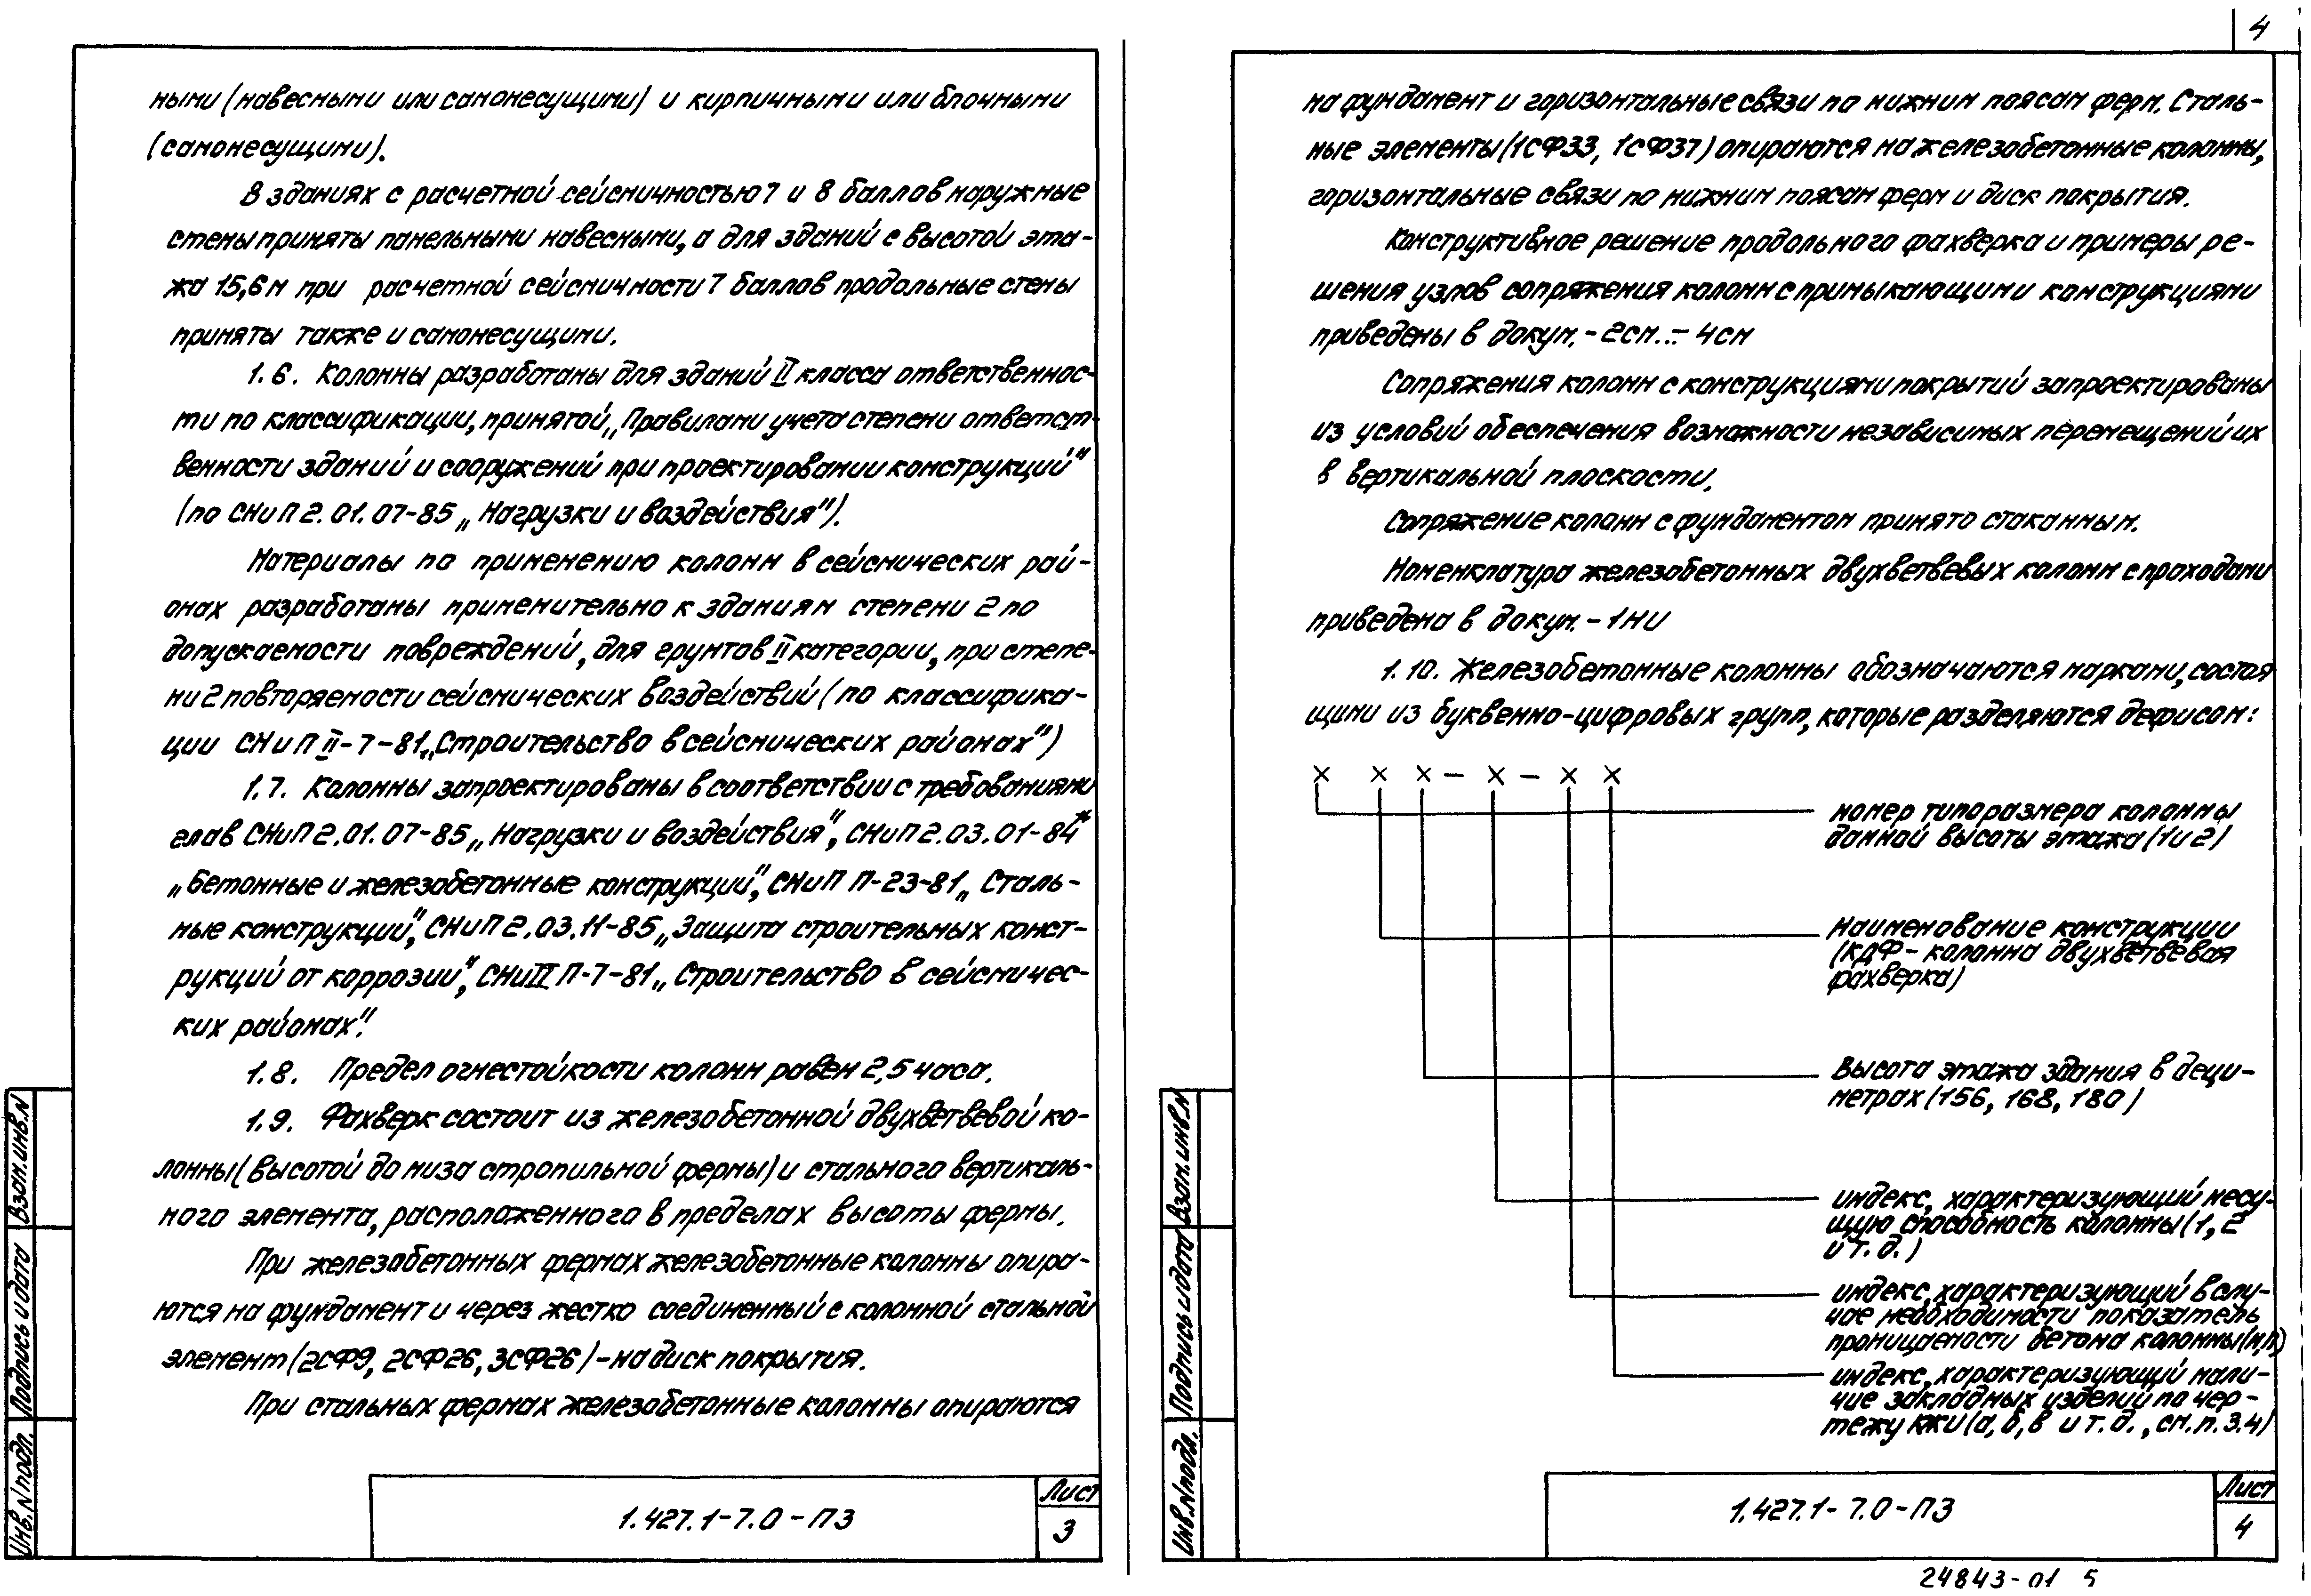 ными (навесными или самонесущими) и кирпичными или блочными
(самонесущими).
В зданиях с расчетной сейсмичностью 7 и 8 баллов наружные
стены приняты панельными навесными, а для зданий с высотой эта-
жа 15,6м при расчетной сейсмичности 7 баллов продольные стены
приняты также и самонесущими.
1.6. Колонны разработаны для зданий II класса ответственнос-
ти по классификации, принятой „Правилами учета степени ответст-
венности зданий и сооружений при проектировании конструкций"
(по СНиП 2.01.07-85 „Нагрузки и воздействия").
Материалы по применению колонн в сейсмических рай-
онах разработаны применительно к зданиям степени 2 по
допускаемости повреждений, для грунтов II категории, при степе-
ни 2 повторяемости сейсмических воздействий (по классифика-
ции СНиП II-7-81 „Строительство в сейсмических районах")
1.7. Колонны запроектированы в соответствии с требованиями
глав СНиП 2.01.07-85 „Нагрузки и воздействия", СНиП 2.03.01-84*
„Бетонные и железобетонные конструкций", СНиП П-23-81 „Сталь-
ные конструкций", СНиП 2.03.11-85 „Защита строительных конст-
рукций от коррозии", СНиII П-7-81 „Строительство в сейсмичес-
ких районах".
1.8. Предел огнестойкости колонн равен 2,5 часа.
1.9. Фахверк состоит из железобетонной двухветвевой ко-
лонны (высотой до низа стропильной фермы) и стального вертикаль-
ного элемента, расположенного в пределах высоты фермы.
При железобетонных фермах железобетонные колонны опира-
ются на фундамент и через жестко соединенный с колонной стальной
элемент (2СФ9, 2СФ26, 3СФ26) - на диск покрытия.
При стальных фермах железобетонные колонны опираются
Взам.инв.N
Подпись и дата
Инв.N подл.
1.427.1-7.0-ПЗ
Лист
3
4
на фундамент и горизонтальные связи по нижним поясам ферм. Сталь-
ные элементы (1СФ33, 1СФ37) опираются на железобетонные колонны,
горизонтальные связи по нижним поясам ферм и диск покрытия.
Конструктивное решение продольного фахверка и примеры ре-
шения узлов сопряжения колонн с примыкающими конструкциями
приведены в докум. - 2СМ...- 4СМ
Сопряжения колонн с конструкциями покрытий запроектированы
из условий обеспечения возможности независимых перемещений их
в вертикальной плоскости.
Сопряжение колонн с фундаментом принято стаканным.
Номенклатура железобетонных двухветвевых колонн с проходами
приведена в докум. - 1НИ
1.10. Железобетонные колонны обозначаются марками, состоя
щими из буквенно-цифровых групп, которые разделяются дефисом:
× × × - × - × ×
номер типоразмера колонны
данной высоты этажа (1 и 2)
Наименование конструкции
(КДФ - колонна двухветвевая
фахверка)
Высота этажа здания в деци-
метрах (156, 168, 180)
индекс, характеризующий несу-
щую способность колонны (1, 2
и т. д.)
индекс, характеризующий в слу-
чае необходимости показатель
проницаемости бетона колонны (н, п)
индекс, характеризующий нали-
чие закладных изделий по чер-
тежу КЖИ (а, б, в и т. д., см. п. 3.4)
Взам.инв.N
Подпись и дата
Инв.N подл.
1.427.1-7.0-ПЗ
Лист
4
24843-01 5